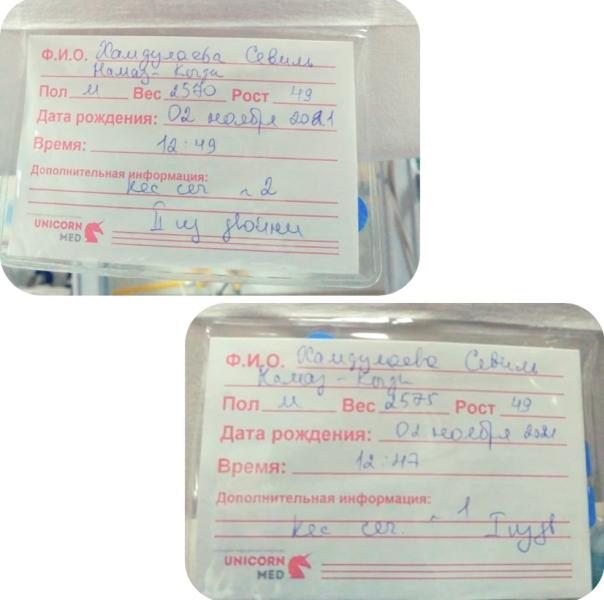 Ф.И.О. Хамдулаева Севиль
Намаз-Кызы
Пол м Вес 2570 Рост 49
Дата рождения: 02 ноября 2021
Время: 12:49
Дополнительная информация:
Кес сеч ~ 2
II из двойни
UNICORN
MED
Ф.И.О. Хамдулаева Севиль
Намаз-Кызы
Пол м Вес 2575 Рост 49
Дата рождения: 02 ноября 2021
Время: 12:47
Дополнительная информация:
Кес сеч. ~ 1 I из дв
UNICORN
MED